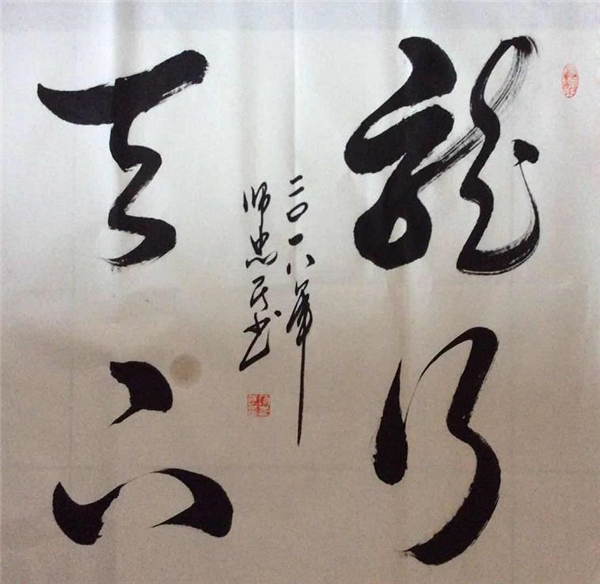 龍行
天下
二〇一八年
师忠民书